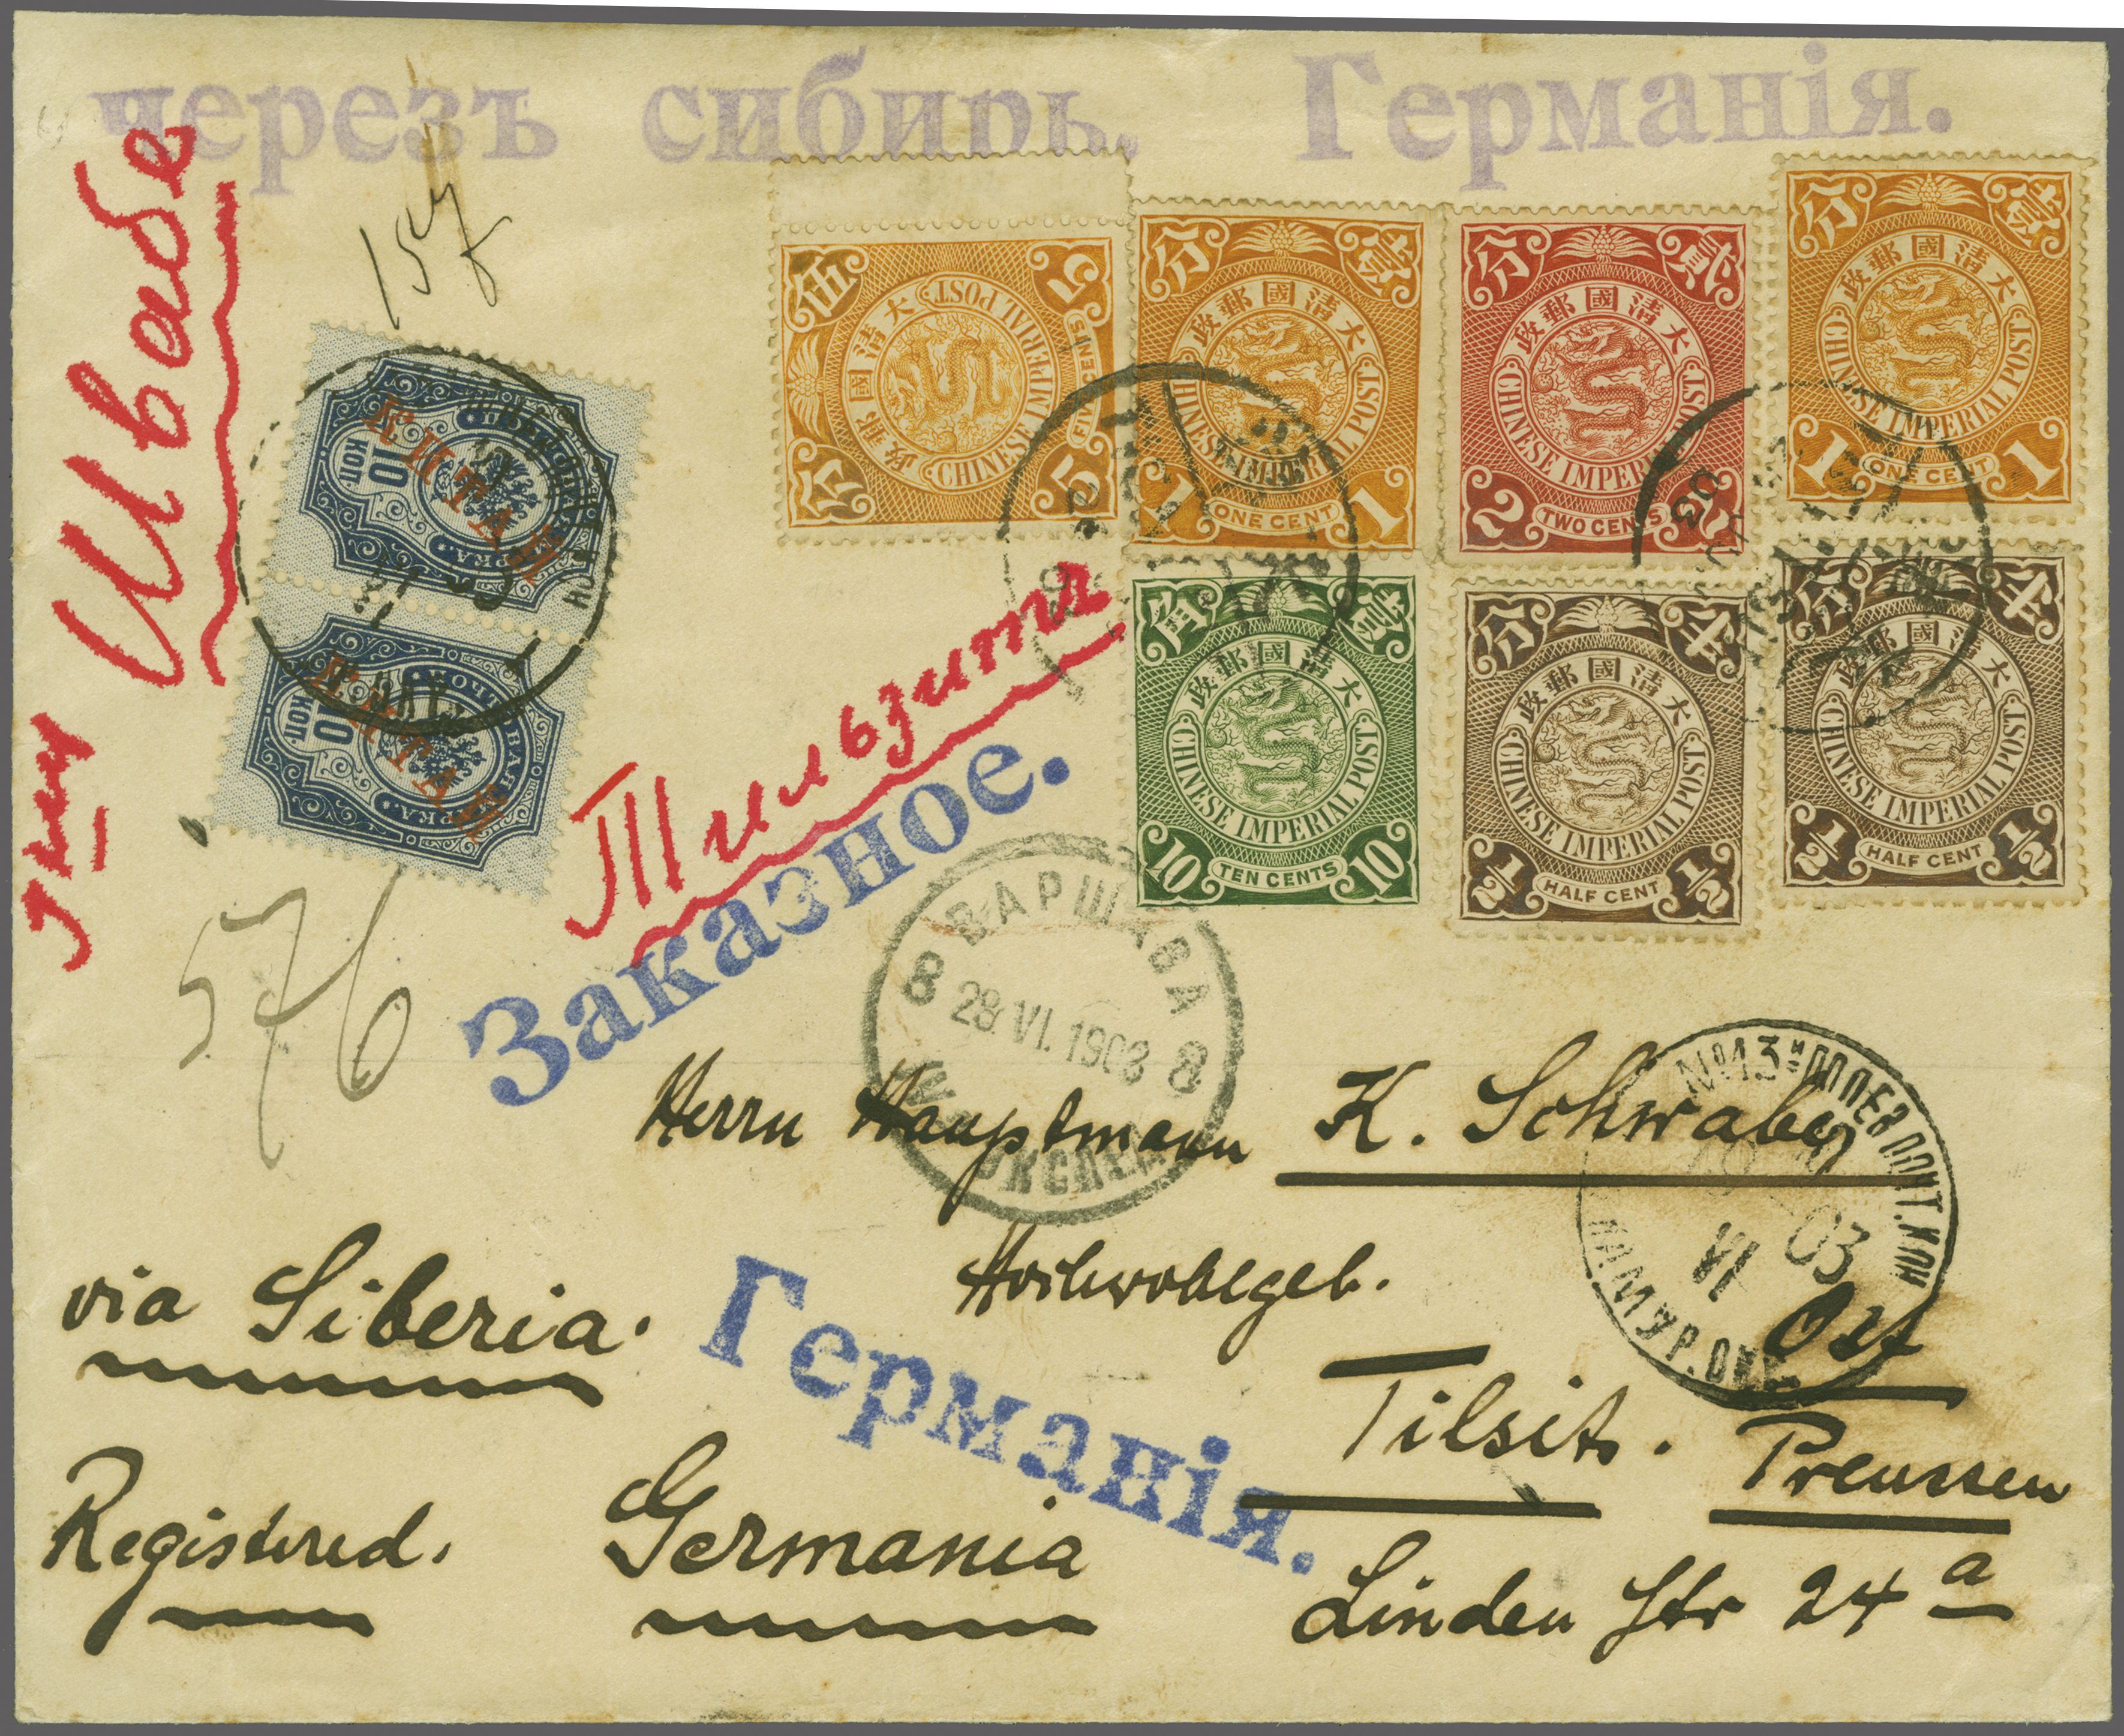 черезъ сибирь. Германія.
Г-ну Швабе
157
10 КОП. КИТАЙ
10 КОП. КИТАЙ
伍 5 大清國郵政 CHINESE IMPERIAL POST 5 CENTS
分 壹 大清國郵政 CHINESE IMPERIAL POST 1 ONE CENT 1
分 貳 大清國郵政 CHINESE IMPERIAL POST 2 TWO CENTS 2
分 壹 大清國郵政 CHINESE IMPERIAL POST 1 ONE CENT 1
大清國郵政 CHINESE IMPERIAL POST 10 TEN CENTS 10
分 半 大清國郵政 CHINESE IMPERIAL POST ½ HALF CENT ½
分 半 大清國郵政 CHINESE IMPERIAL POST ½ HALF CENT ½
Тильзитъ
Заказное.
576
ВАРШАВА
8 28 VI. 1903 8
№13й ПОЛЕВ ПОЧТ. КОН
VI 03
Herrn Hauptmann K. Schwabe
Hochwohlgeb.
via Siberia.
Германія.
Tilsit. Ost
Preussen
Registered.
Germania
Linden Str 24 a